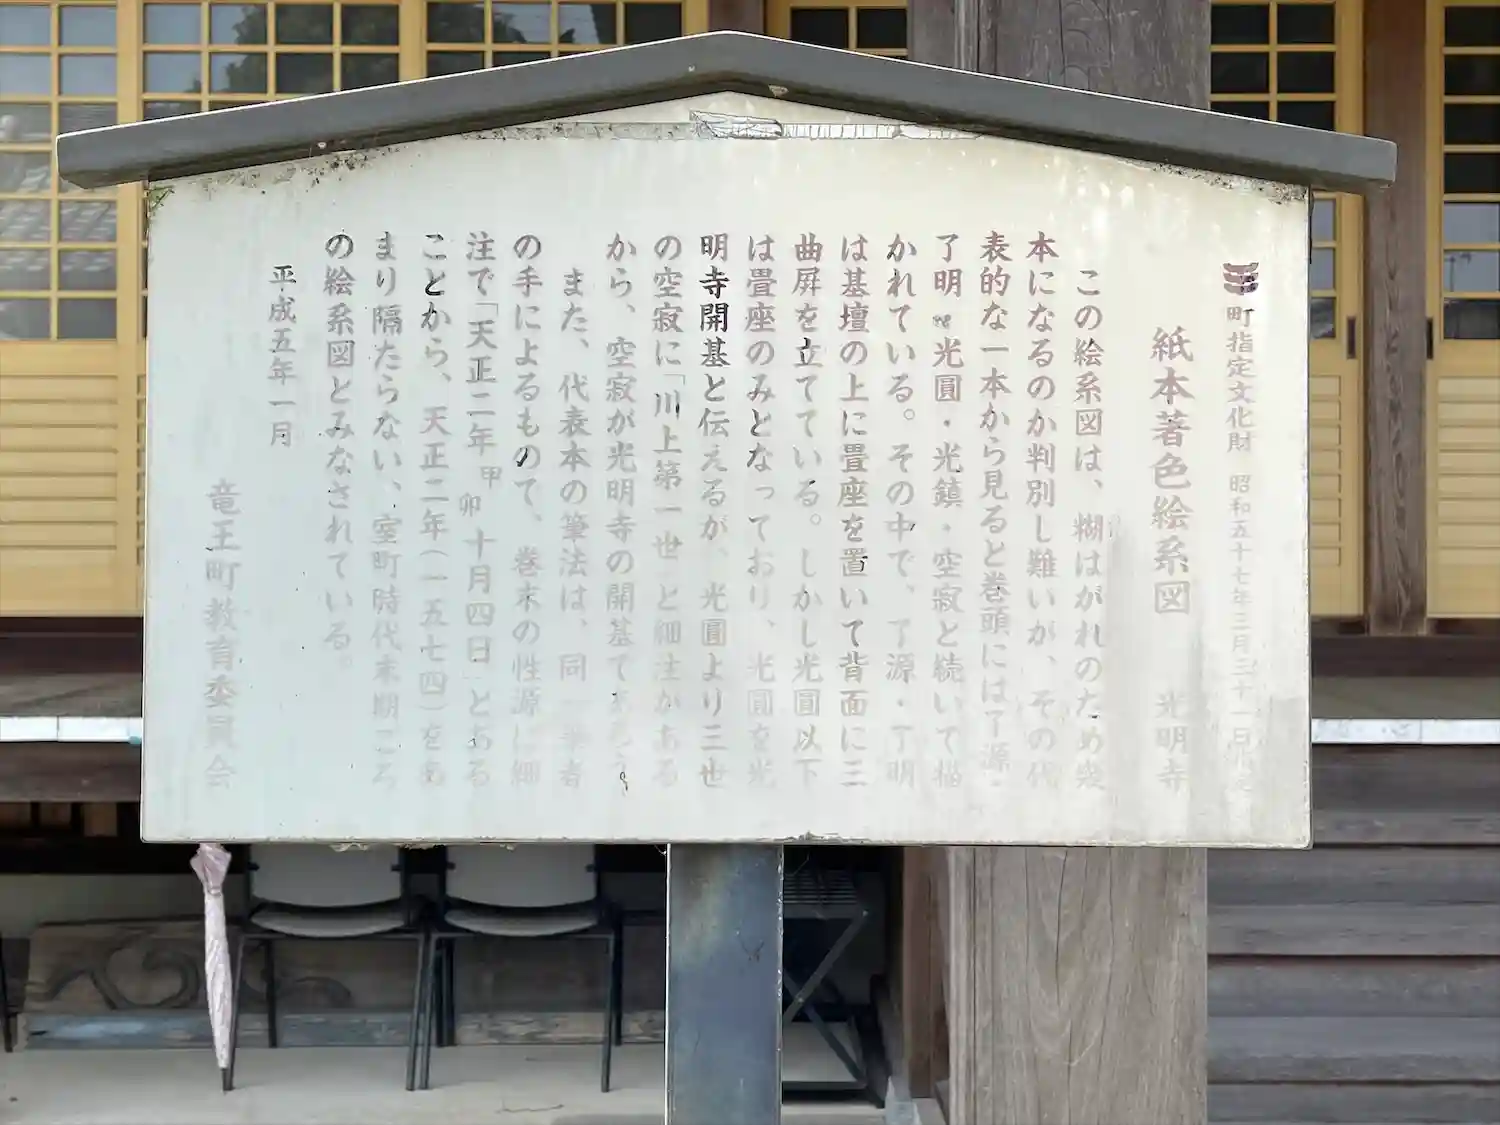 町指定文化財 昭和五十七年三月三十一日指定
紙本著色絵系図 光明寺
この絵系図は、糊はがれのため幾
本になるのか判別し難いが、その代
表的な一本から見ると巻頭には了源・
了明・光圓・光鎮・空寂と続いて描
かれている。その中で、了源・了明
は基壇の上に畳座を置いて背面に三
曲屛を立てている。しかし光圓以下
は畳座のみとなっており、光圓を光
明寺開基と伝えるが、光圓より三世
の空寂に「川上第一世」と細注がある
から、空寂が光明寺の開基であろう
また、代表本の筆法は、同一筆者
の手によるもので、巻末の性源に細
注で「天正二年 甲卯 十月四日」とある
ことから、天正二年(一五七四)をあ
まり隔たらない、室町時代末期ごろ
の絵系図とみなされている。
平成五年一月
竜王町教育委員会